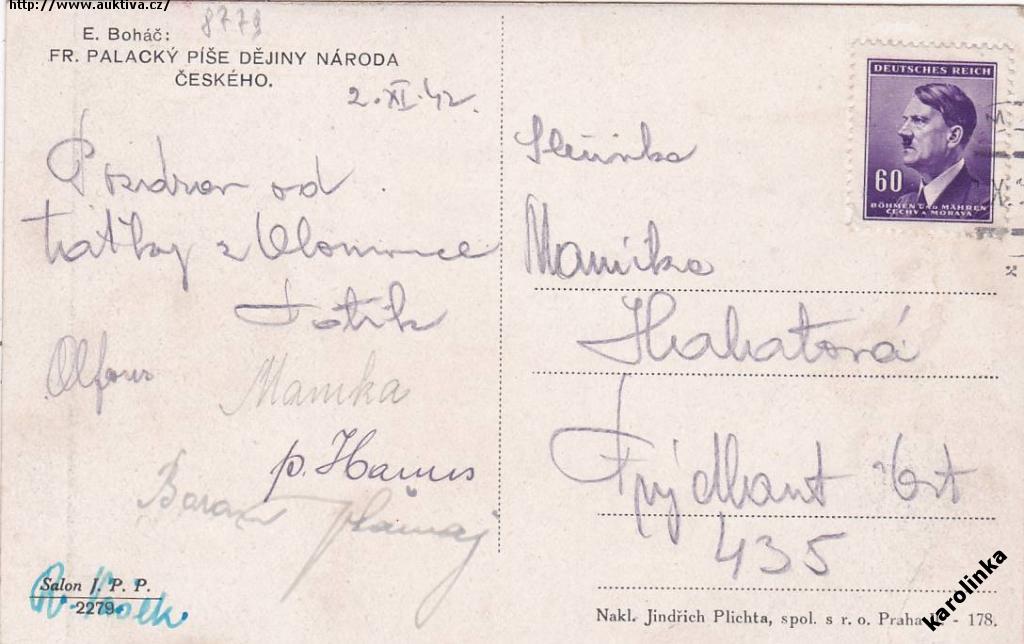 http://www.auktiva.cz/
8779
E. Boháč:
FR. PALACKÝ PÍŠE DĚJINY NÁRODA
ČESKÉHO.
2.XI.42.
Pozdrav od
taťky z Olomouce
Toník
Mamka
p. Hanus
Baran
Salon J. P. P.
2279
DEUTSCHES REICH
60
BÖHMEN UND MÄHREN
ČECHY A MORAVA
Slečinka
Mařička
Frýdlant
435
Nakl. Jindřich Plichta, spol. s r. o. Praha - 178.
karolinka